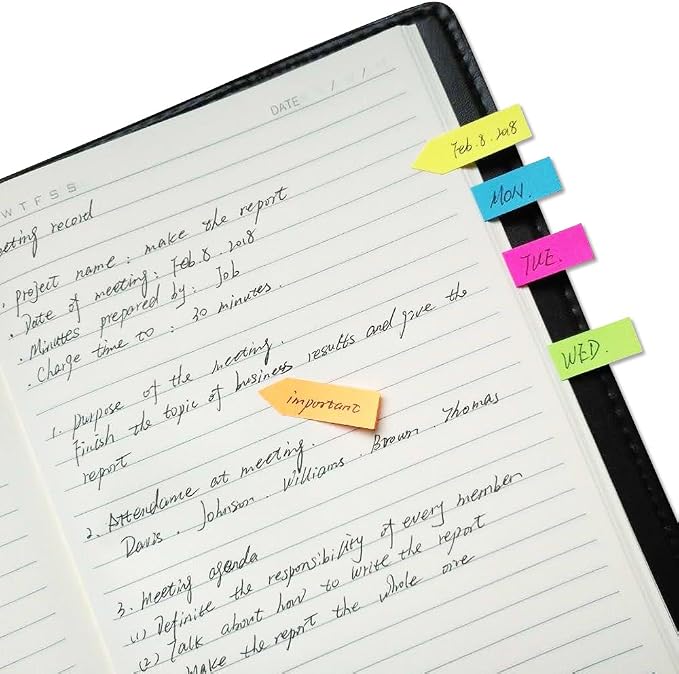 DATE / /
W T F S S
eeting record
. Project name : make the report
. Date of meeting : Feb . 8 . 2018
. Minutes prepared by : Job
. Charge time to : 30 minutes .
1. purpose of the meeting .
Finish the topic of business results and give the
report
important
2. Attendance at meeting .
Davis . Johnson . Williams . Brown . Thomas
3. meeting agenda
(1) Definite the responsibility of every member
(2) Talk about how to write the report
Make the report the whole one
Feb . 8 . 2018
MON .
TUE .
WED .